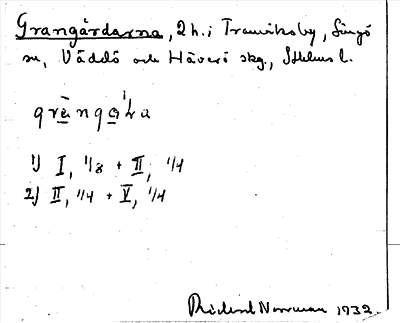 Grangårdarna, 2 h. i Tranviksby, Singö
sn, Väddö och Häverö skg., Sthlms l.
grὲngɑ̀ɽa
1) I, 1/8 + II, 1/4
2) II, 1/4 + V, 1/4
Rickard Norrman 1932.